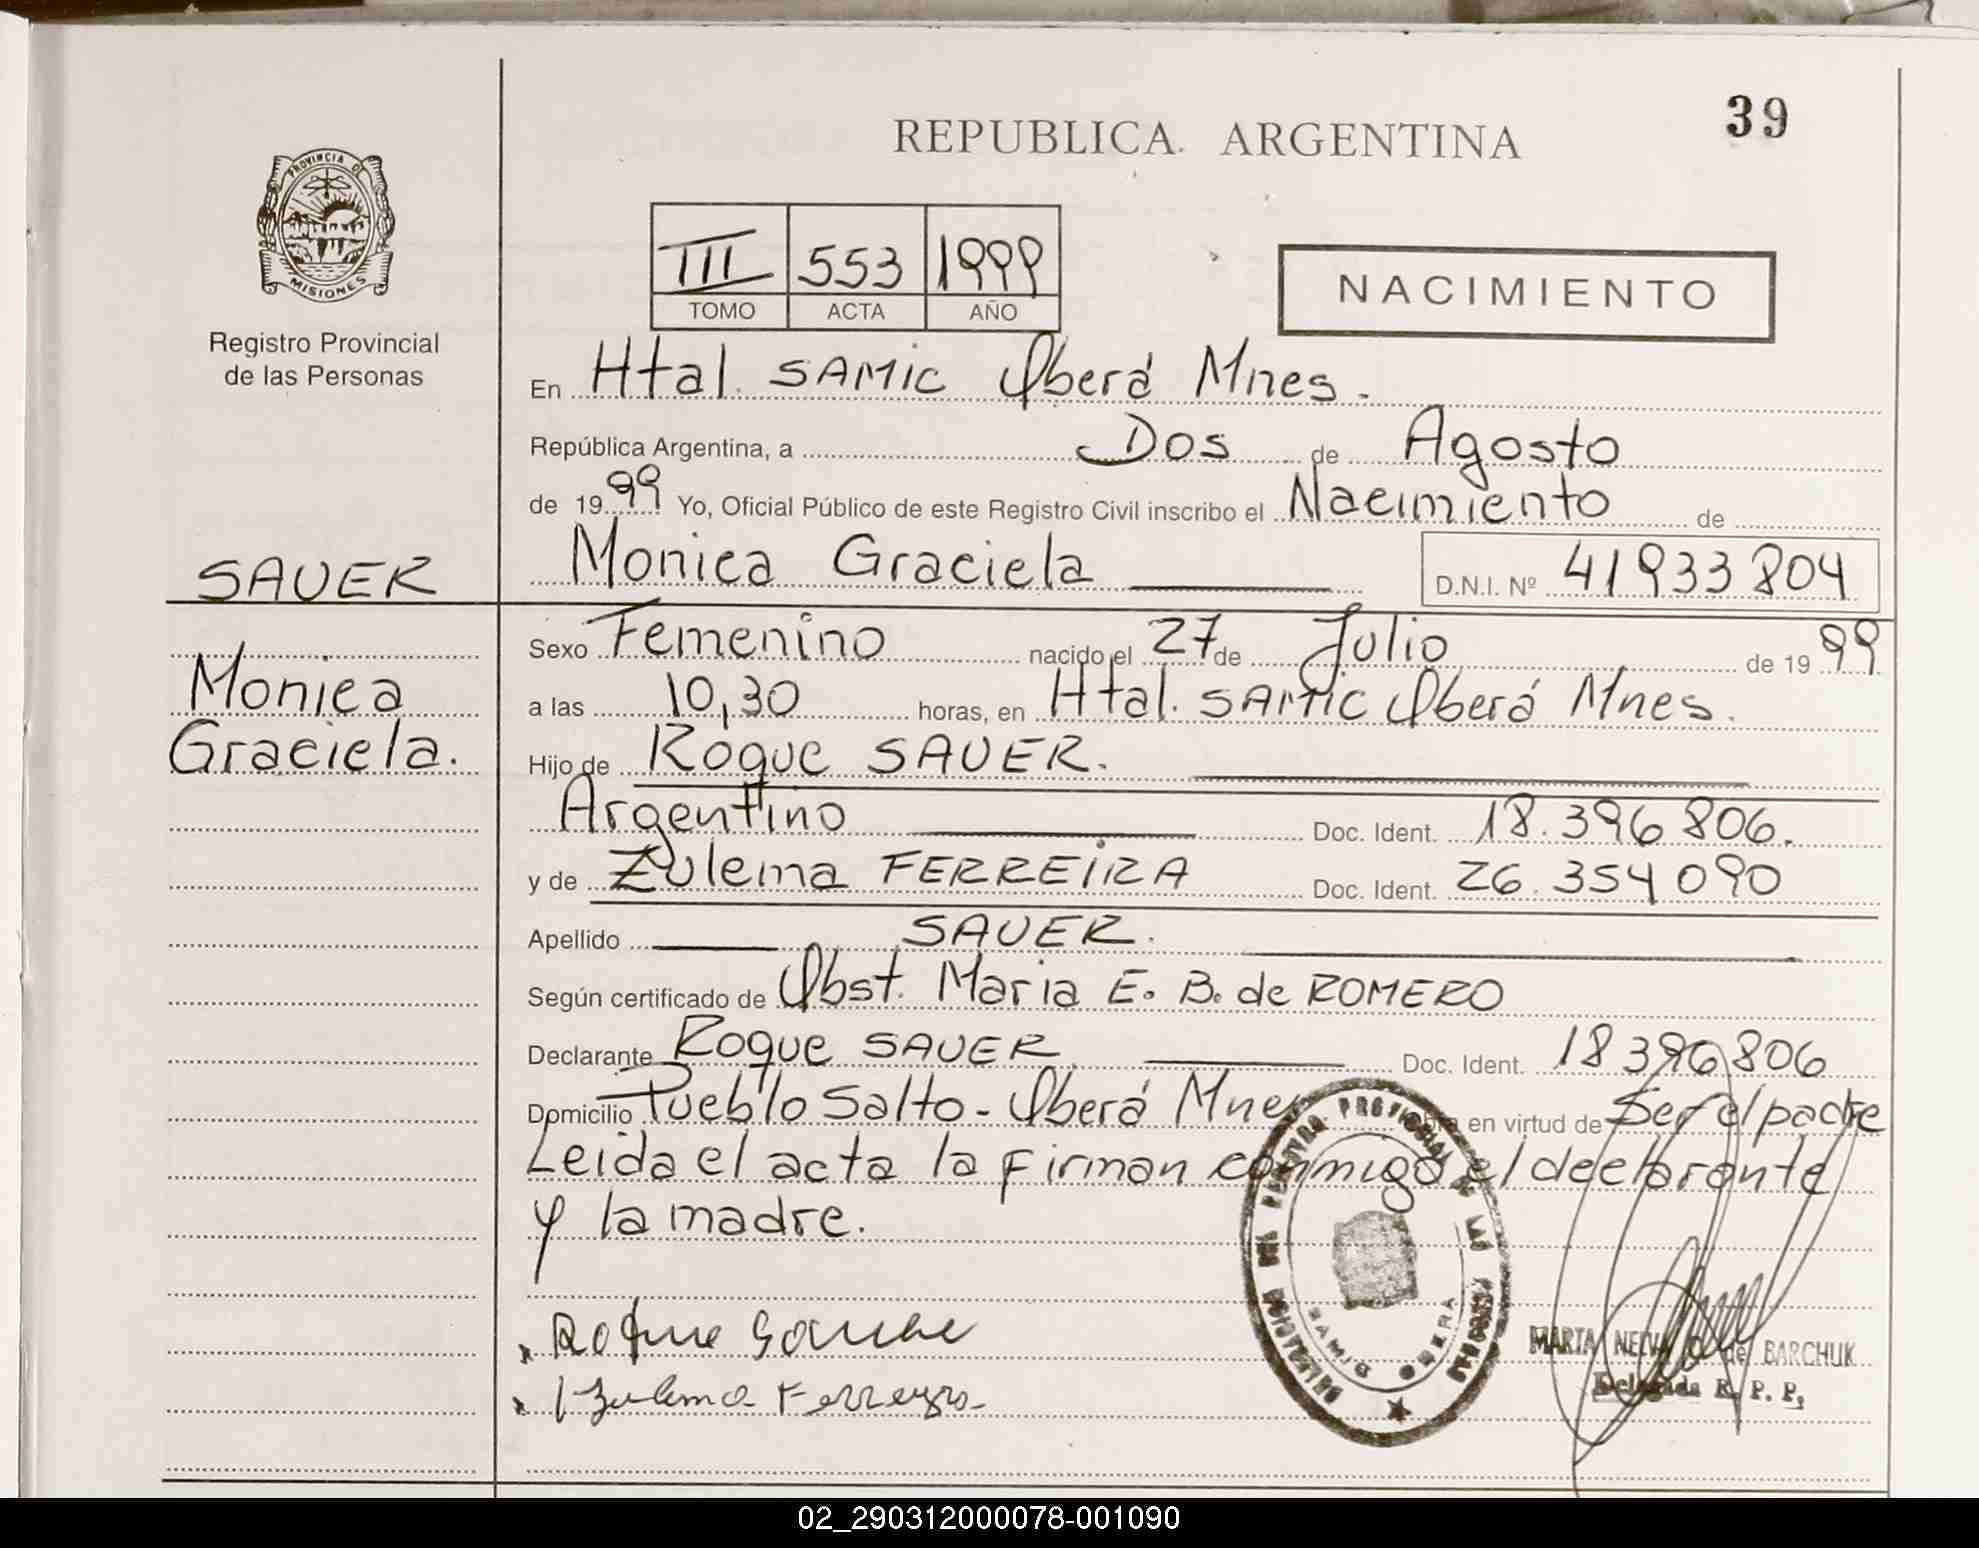 39
REPUBLICA ARGENTINA
PROVINCIA DE
MISIONES
Registro Provincial
de las Personas
III 553 1999
TOMO ACTA AÑO
NACIMIENTO
En Htal. SAMIC Oberá Mnes.
República Argentina, a Dos de Agosto
de 1999 Yo, Oficial Público de este Registro Civil inscribo el Nacimiento de
SAUER
Monica Graciela D.N.I. Nº 41933804
Monica
Graciela.
Sexo Femenino nacido el 27 de Julio de 1999
a las 10,30 horas, en Htal. SAMIC Oberá Mnes.
Hijo de Roque SAUER.
Argentino Doc. Ident. 18.396806.
y de Zulema FERREIRA Doc. Ident. 26.354090
Apellido SAUER.
Según certificado de Obst. Maria E. B. de ROMERO
Declarante Roque SAUER Doc. Ident. 18396806
Domicilio Pueblo Salto - Oberá Mnes en virtud de Ser el padre
Leida el acta la firman conmigo el declarante
y la madre.
DELEGACION DEL REGISTRO PROVINCIAL DE LAS PERSONAS
SAMIC OBERA
Roque
Zulema Ferreyra
MARTA NELVA de BARCHUK
Delegada R. P. P.
02_290312000078-001090